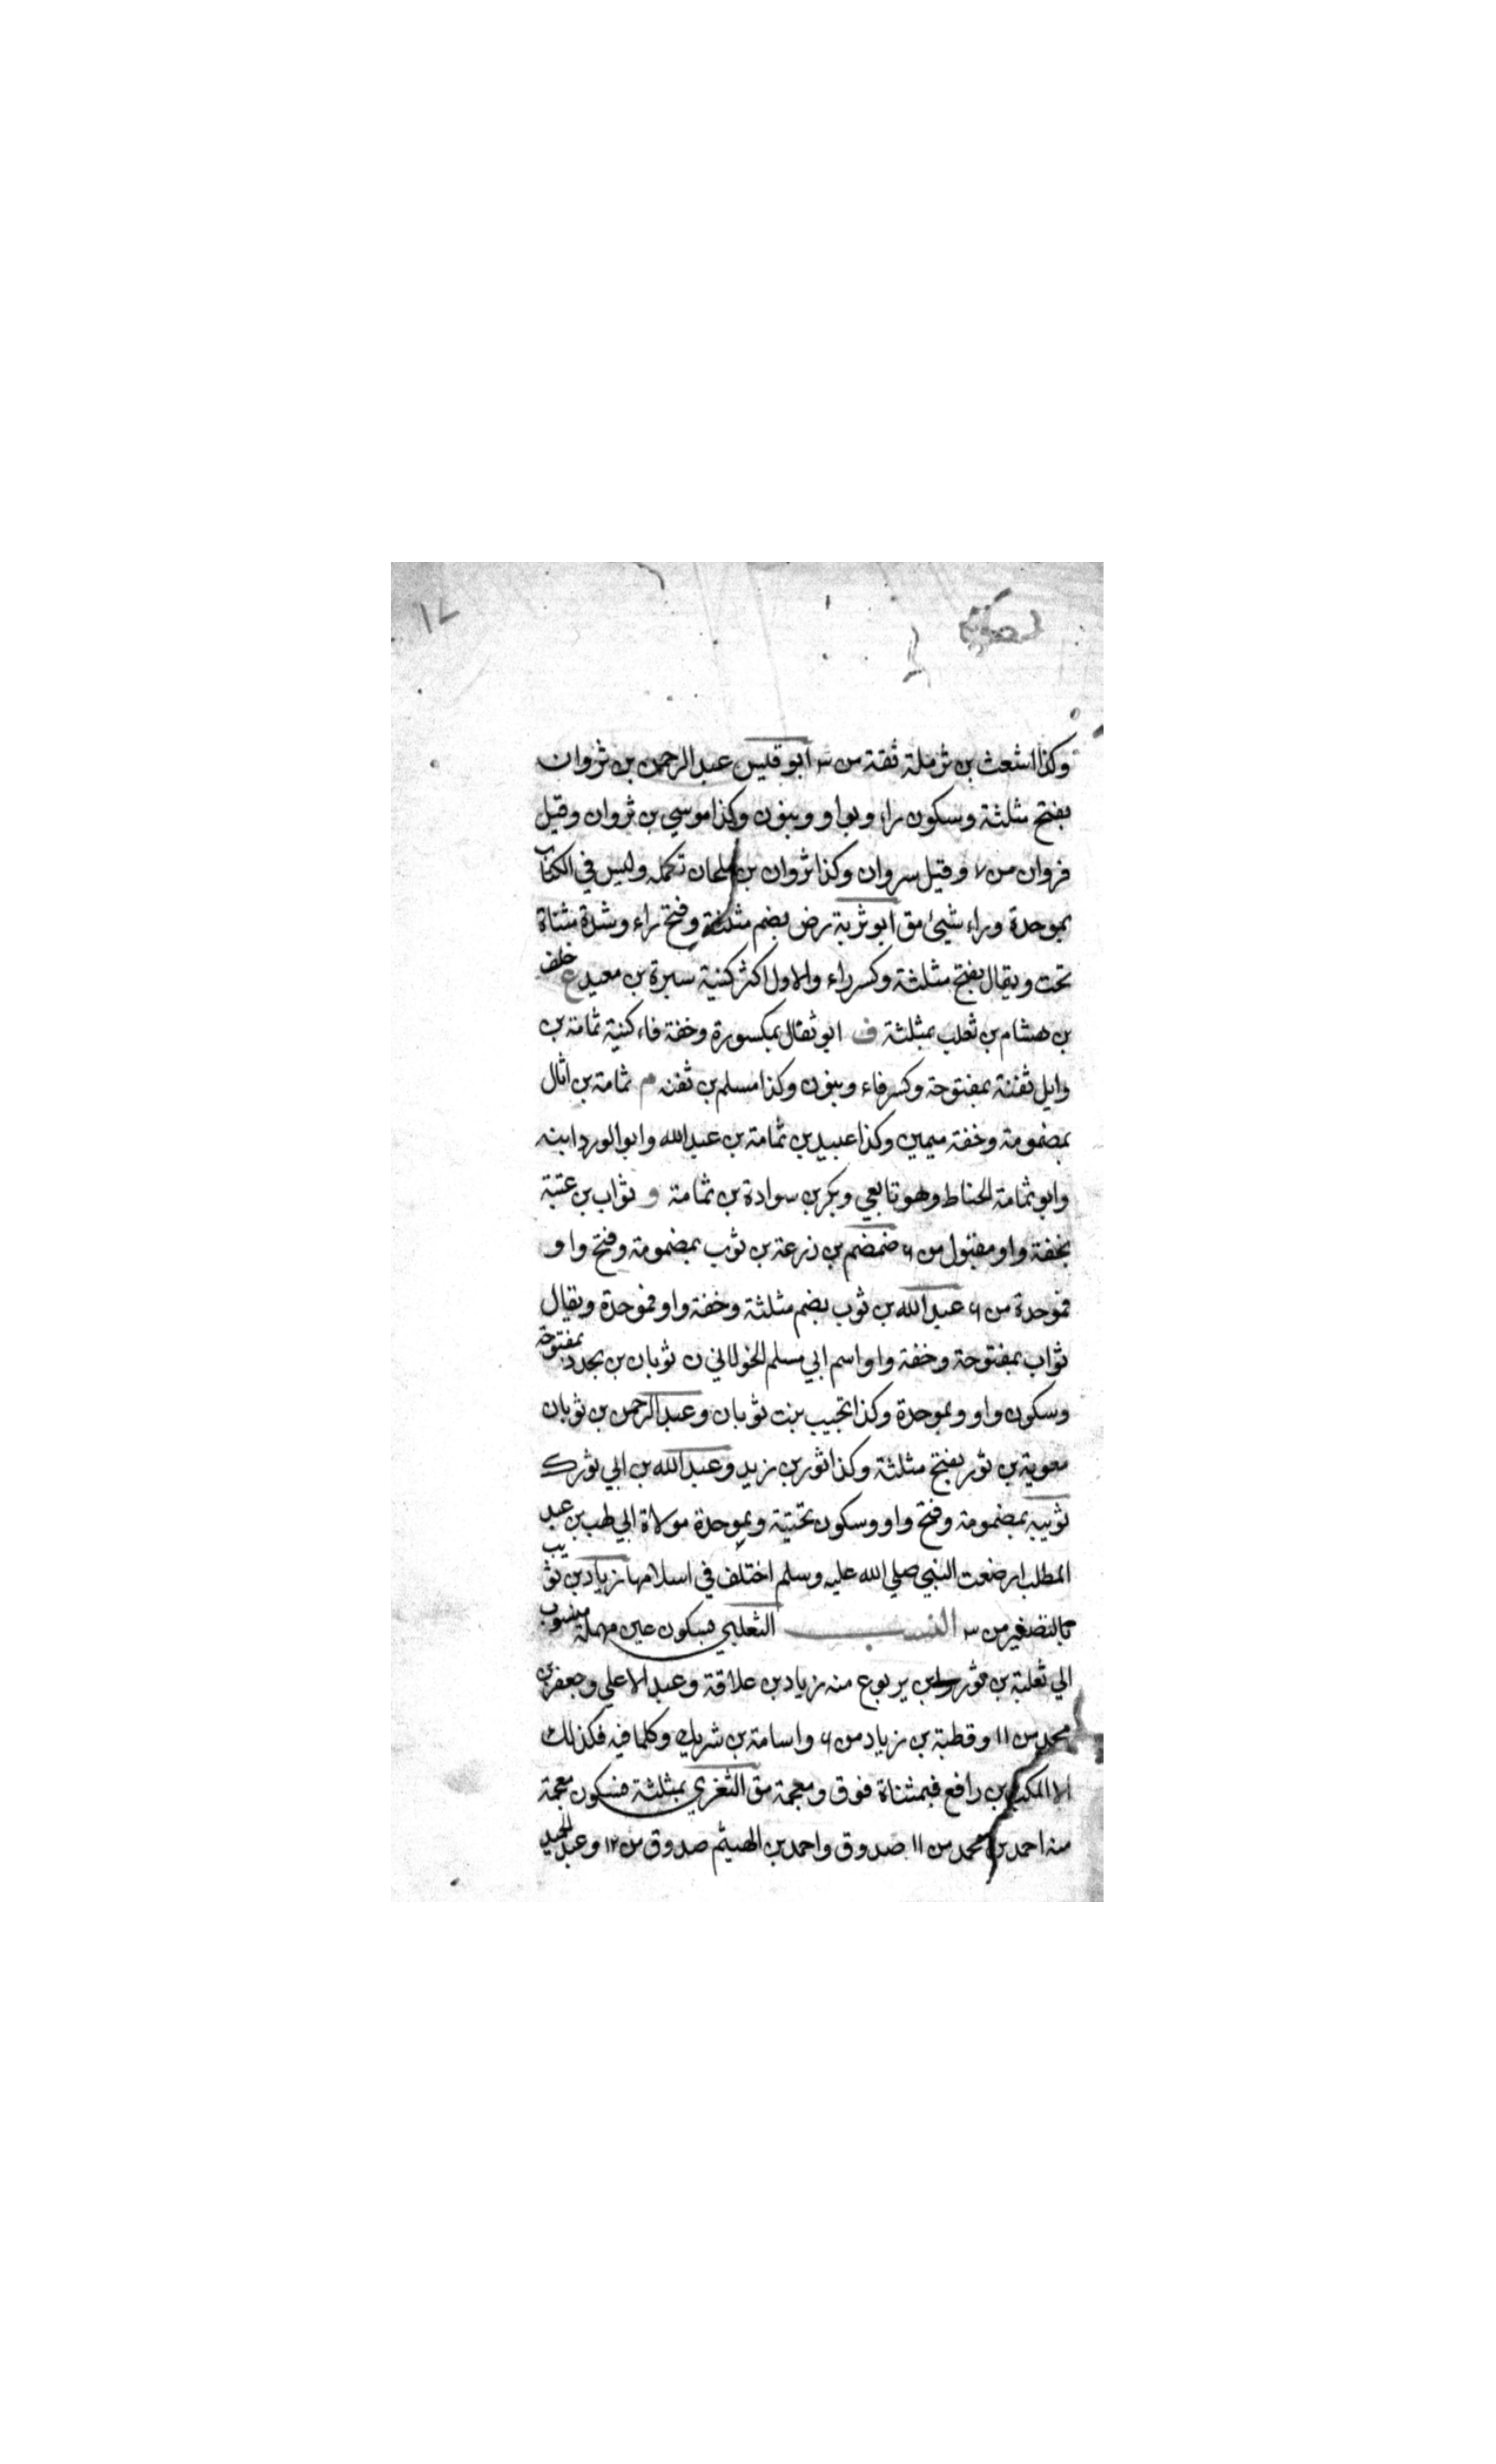 ١٧
وكذا اشعث بن ثرملة ثقة من ٣ ابو قيس عبد الرحمن بن ثروان
بفتح مثلثة وسكون راء وبواو وبنون وكذا موسي بن ثروان وقيل
فروان من ٧ وقيل سروان وكذا ثروان بن ملحان تكمله وليس في الكتاب
بموحدة وراء شيئ مق ابو ثرية رض بضم مثلثة وفتح راء وشدة مثناة
تحت ويقال بفتح مثلثة وكسر راء والاول اكثر كنية سبرة بن معبد ع خلف
بن هشام بن ثعلب بمثلثة ف ابو ثفال بمكسورة وخفة فاء كنية ثمامة بن
وايل ثفنة بمفتوحة وكسر فاء وبنون وكذا مسلم بن ثفنه م ثمامة بن اثال
بمضمومة وخفة ميمين وكذا عبيد بن ثمامة بن عبد الله وابو الورد ابنه
وابو ثمامة الحناط وهو تابعي وبكر بن سوادة بن ثمامة و ثواب بن عتبة
بخفة واو مقبول من ٦ ضمضم بن زرعة بن ثوب بمضمومة وفتح واو
فموحدة من ٦ عبد الله بن ثوب بضم مثلثة وخفة واو فموحدة ويقال
ثواب بمفتوحة وخفة واو اسم ابي مسلم الخولاني ن ثوبان بن بجدد بمفتوحة
وسكون واو وبموحدة وكذا تجيب بنت ثوبان وعبد الرحمن بن ثوبان
معوية بن ثور بفتح مثلثة وكذا ثور بن زيد وعبد الله بن ابي ثور ك
ثويبه بمضمومة وفتح واو وسكون تحتية وبموحدة مولاة ابي لهب بن عبد
المطلب ارضعت النبي صلي الله عليه وسلم اختلف في اسلامها زياد بن ثويب
كالتصغير من ٣ النسب الثعلبي بسكون عين مهملة منسوب
الي ثعلبة بن ثور بن يربوع منه زياد بن علاقة وعبد الاعلي وجعفر بن
محمد من ١١ وقطبة بن زياد من ٦ واسامة بن شريك وكلما فيه فكذلك
الا المكتب بن رافع فبمثناة فوق ومعجمة مق الثغري بمثلثة فسكون معجمة
منه احمد بن محمد من ١١ صدوق واحمد بن الهيثم صدوق من ١٢ وعبد الحميد